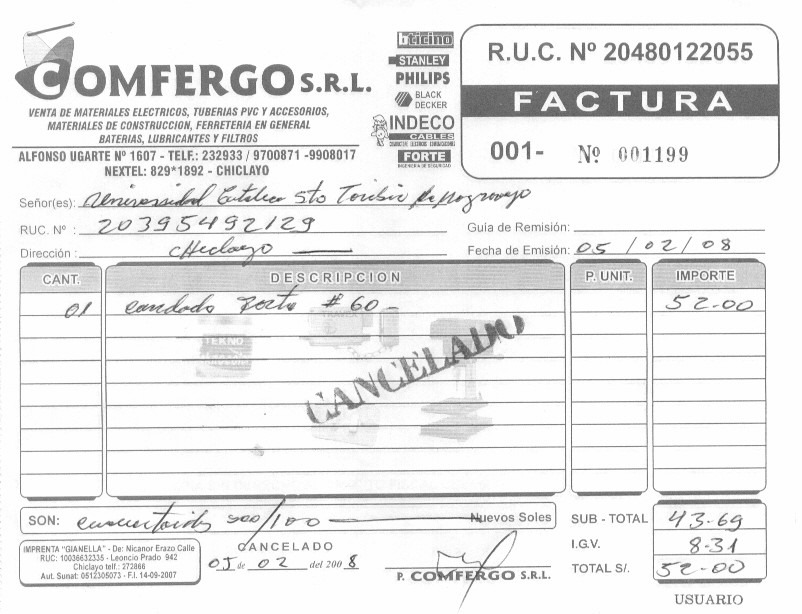 COMFERGO S.R.L.
VENTA DE MATERIALES ELECTRICOS, TUBERIAS PVC Y ACCESORIOS,
MATERIALES DE CONSTRUCCION, FERRETERIA EN GENERAL
BATERIAS, LUBRICANTES Y FILTROS
ALFONSO UGARTE Nº 1607 - TELF.: 232933 / 9700871 -9908017
NEXTEL: 829*1892 - CHICLAYO
bticino
STANLEY
PHILIPS
BLACK
DECKER
INDECO
CABLES
FORTE
R.U.C. Nº 20480122055
FACTURA
001- Nº 001199
Señor(es): Universidad Catolica Sto Toribio de Mogrovejo
RUC. Nº : 20395492129
Guia de Remisión:
Dirección : Chiclayo
Fecha de Emisión: 05 / 02 / 08
CANT. DESCRIPCION P. UNIT. IMPORTE
01 candado Forte # 60 52.00
TEKNO
CANCELADO
SON: 00/100 Nuevos Soles
SUB - TOTAL 43.69
I.G.V. 8.31
TOTAL S/. 52.00
IMPRENTA "GIANELLA" - De: Nicanor Erazo Calle
RUC: 10036632335 - Leoncio Prado 942
Chiclayo telf.: 272866
Aut. Sunat: 0512305073 - F.I. 14-09-2007
CANCELADO
05 de 02 del 2008
P. COMFERGO S.R.L.
USUARIO